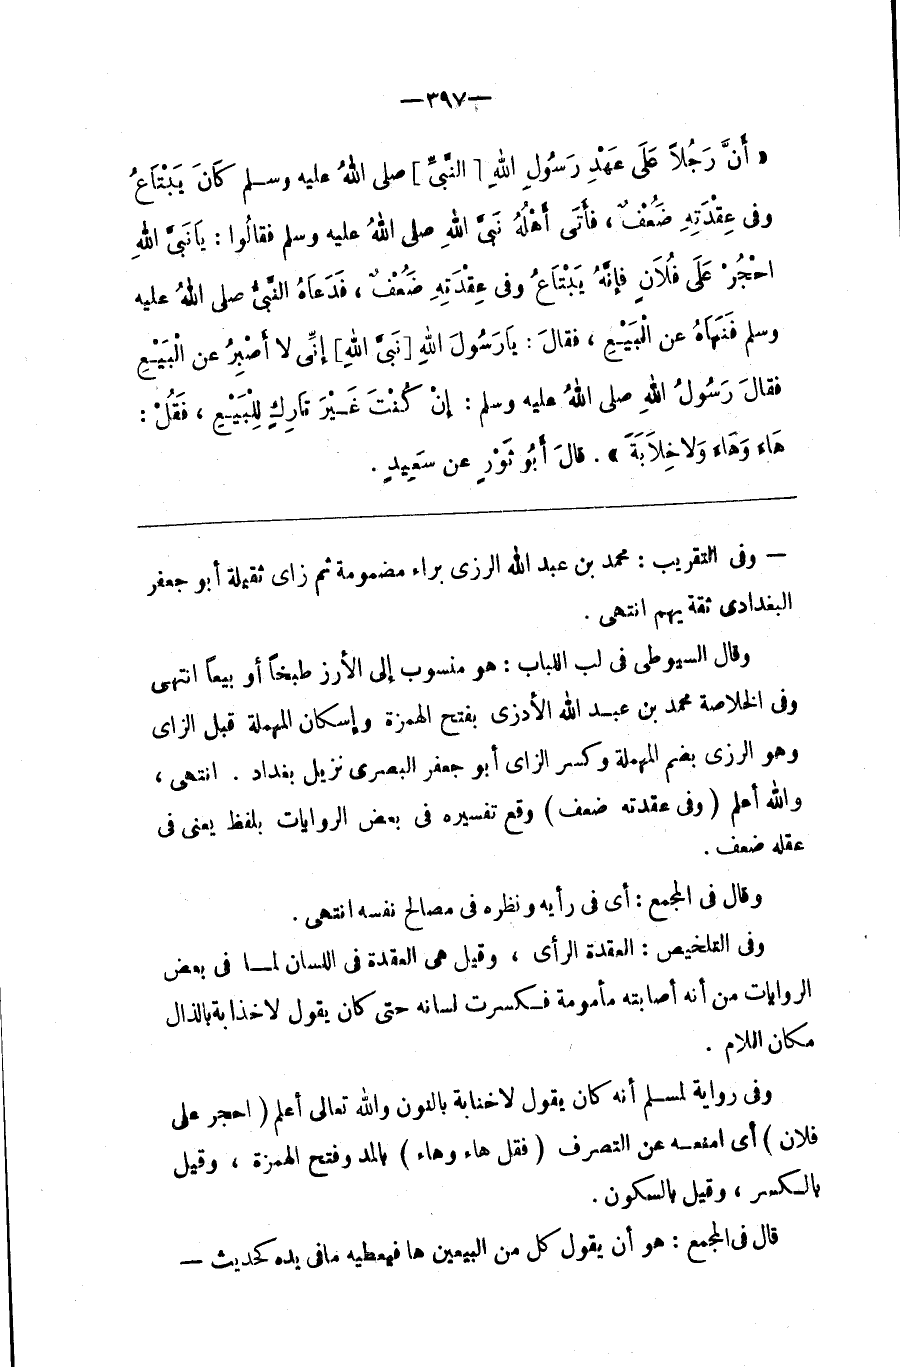 —٣٩٧—
« أَنَّ رَجُلاً عَلَى عَهْدِ رَسُولِ اللهِ [ النَّبِيِّ ] صلى اللهُ عليه وسـلم كَانَ يَبْتَاعُ
وفى عِقْدَتِهِ ضُعْفٌ ، فأَتَى أَهْلُهُ نَبِيَّ اللهِ صلى اللهُ عليه وسلم فقالُوا : يَانَبِيَّ اللهِ
احْجُرْ عَلَى فُلَانٍ فإِنَّهُ يَبْتَاعُ وفى عِقْدَتِهِ ضُعْفٌ ، فَدَعَاهُ النَّبِيُّ صلى اللهُ عليه
وسلم فَنَهَاهُ عن الْبَيْعِ ، فقالَ : يَارَسُولَ اللهِ [نَبِيَّ اللهِ] إِنِّى لا أصْبِرُ عن الْبَيْعِ
فقالَ رَسُولُ اللهِ صلى اللهُ عليه وسلم : إِنْ كُنْتَ غَـيْرَ تَارِكٍ لِلْبَيْعِ ، فَقُلْ :
هَاء وَهَاء وَلا خِلاَبَةَ » . قالَ أَبُو ثَوْرٍ عن سَعِيدٍ .
— وفى التقريب : محمد بن عبد الله الرزى براء مضمومة ثم زاى ثقيلة أبو جعفر
البغدادى ثقة يهم انتهى .
وقال السيوطى فى لب اللباب : هو منسوب إلى الأرز طبخاً أو بيعاً انتهى
وفى الخلاصة محمد بن عبـد الله الأدزى بفتح الهمزة وإسكان المهملة قبل الزاى
وهو الرزى بضم المهملة وكسر الزاى أبو جعفر البصرى نزيل بغداد . انتهى ،
والله أعلم ( وفى عقدته ضعف ) وقع تفسيره فى بعض الروايات بلفظ يعنى فى
عقله ضعف .
وقال فى المجمع : أى فى رأيه ونظره فى مصالح نفسه انتهى .
وفى التلخيص : العقدة الرأى ، وقيل هى العقدة فى اللسان لمـا فى بعض
الروايات من أنه أصابته مأمومة فـكسرت لسانه حتى كان يقول لاخذابة بالذال
مكان اللام .
وفى رواية لمسـلم أنه كان يقول لاخنابة بالنون والله تعالى أعلم ( احجر على
فلان ) أى امنعـه عن التصرف ( فقل هاء وهاء ) بالمد وفتح الهمزة ، وقيل
بالـكسر ، وقيل بالسكون .
قال فى المجمع : هو أن يقول كل من البيعين ها فيعطيه مافى يده كحديث —